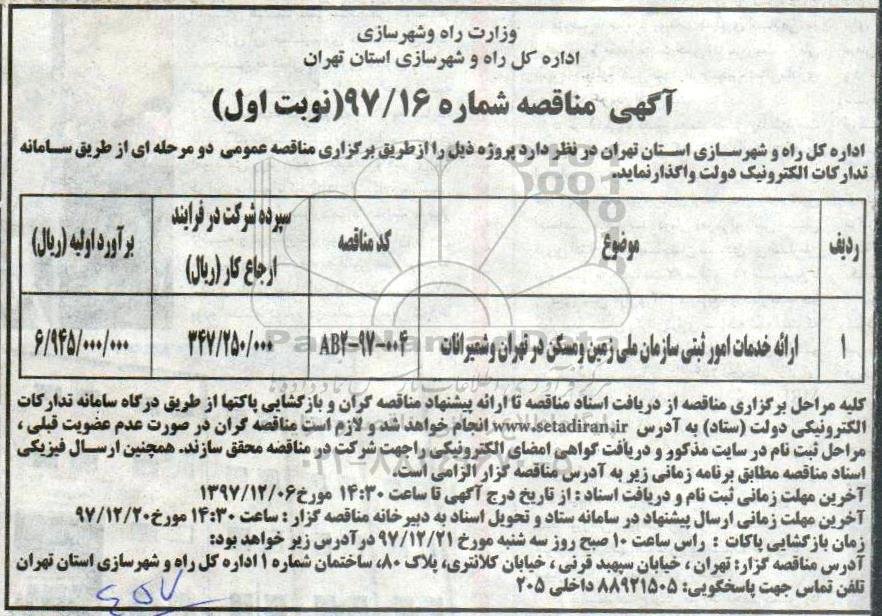 وزارت راه وشهرسازی
اداره کل راه و شهرسازی استان تهران
آگهی مناقصه شماره ۹۷/۱۶(نوبت اول)
اداره کل راه و شهرسازی استان تهران در نظر دارد پروژه ذیل را ازطریق برگزاری مناقصه عمومی دو مرحله ای از طریق سامانه
تدارکات الکترونیک دولت واگذارنماید.
ردیف موضوع کد مناقصه سپرده شرکت در فرایند ارجاع کار (ریال) برآورد اولیه (ریال)
۱ ارائه خدمات امور ثبتی سازمان ملی زمین ومسکن در تهران وشمیرانات AB۲-۹۷-۰۰۴ ۳۴۷/۲۵۰/۰۰۰ ۶/۹۴۵/۰۰۰/۰۰۰
کلیه مراحل برگزاری مناقصه از دریافت اسناد مناقصه تا ارائه پیشنهاد مناقصه گران و بازگشایی پاکتها از طریق درگاه سامانه تدارکات
الکترونیکی دولت (ستاد) به آدرس www.setadiran.ir انجام خواهد شد و لازم است مناقصه گران در صورت عدم عضویت قبلی ،
مراحل ثبت نام در سایت مذکور و دریافت گواهی امضای الکترونیکی راجهت شرکت در مناقصه محقق سازند. همچنین ارسال فیزیکی
اسناد مناقصه مطابق برنامه زمانی زیر به آدرس مناقصه گزار الزامی است.
آخرین مهلت زمانی ثبت نام و دریافت اسناد : از تاریخ درج آگهی تا ساعت ۱۴:۳۰ مورخ۱۳۹۷/۱۲/۰۶
آخرین مهلت زمانی ارسال پیشنهاد در سامانه ستاد و تحویل اسناد به دبیرخانه مناقصه گزار : ساعت ۱۴:۳۰ مورخ۹۷/۱۲/۲۰
زمان بازگشایی پاکات : راس ساعت ۱۰ صبح روز سه شنبه مورخ ۹۷/۱۲/۲۱ درآدرس زیر خواهد بود:
آدرس مناقصه گزار: تهران ، خیابان سپهبد قرنی ، خیابان کلانتری، پلاک ۸۰، ساختمان شماره ۱ اداره کل راه و شهرسازی استان تهران
تلفن تماس جهت پاسخگویی: ۸۸۹۲۱۵۰۵ داخلی ۲۰۵